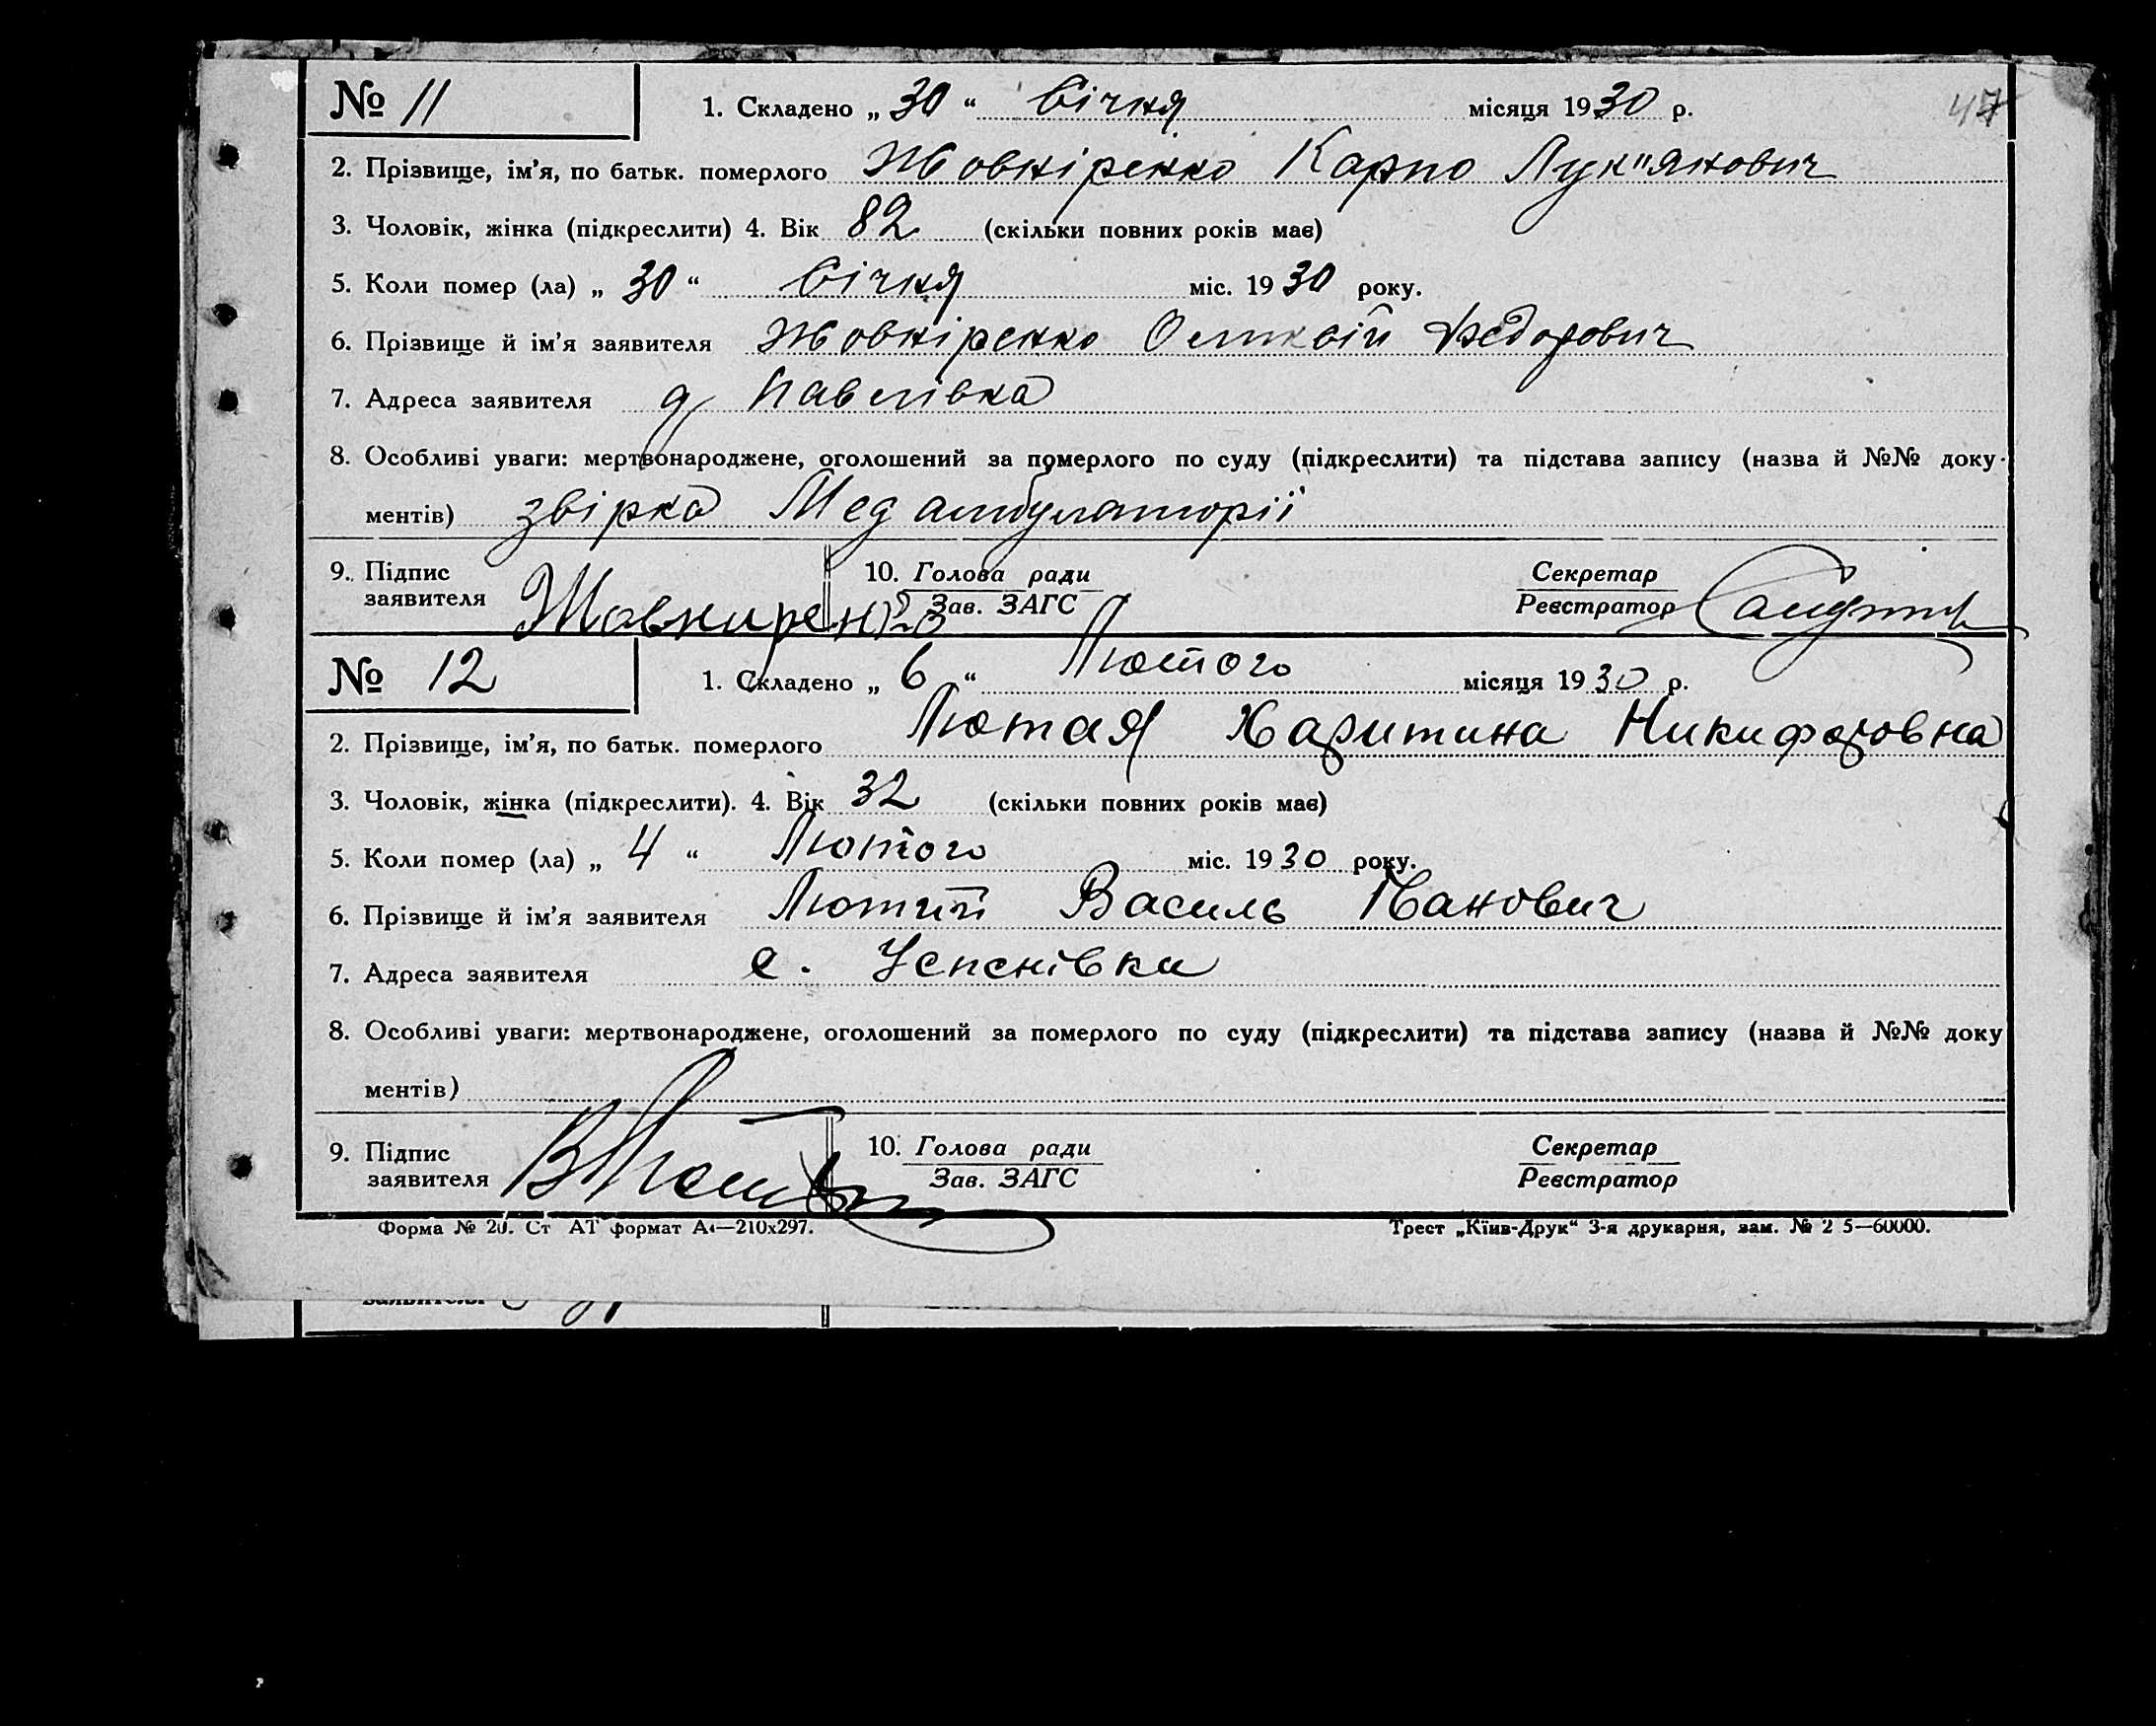 № 11
1. Складено „ 30 “ Січня місяця 1930 р.
47
2. Прізвище, ім’я, по батьк. померлого Жовніренко Карпо Лук"янович
3. Чоловік, жінка (підкреслити) 4. Вік 82 (скільки повних років має)
5. Коли помер (ла) „ 30 “ Січня міс. 1930 року.
6. Прізвище й ім’я заявителя Жовніренко Федорович
7. Адреса заявителя д Павлівка
8. Особливі уваги: мертвонароджене, оголошений за померлого по суду (підкреслити) та підстава запису (назва й №№ доку-
ментів) звірка Мед амбулаторії
9. Підпис
заявителя Жовниренко
10. Голова ради
Зав. ЗАГС
Секретар
Реєстратор
№ 12
1. Складено „ 6 “ Лютого місяця 1930 р.
2. Прізвище, ім’я, по батьк. померлого Лютая Харитина Никифоровна
3. Чоловік, жінка (підкреслити). 4. Вік 32 (скільки повних років має)
5. Коли помер (ла) „ 4 “ Лютого міс. 1930 року.
6. Прізвище й ім’я заявителя Лютий Василь Панович
7. Адреса заявителя с. Успенівка
8. Особливі уваги: мертвонароджене, оголошений за померлого по суду (підкреслити) та підстава запису (назва й №№ доку
ментів)
9. Підпис
заявителя
10. Голова ради
Зав. ЗАГС
Секретар
Реєстратор
Форма № 20. Ст АТ формат А4—210х297.
Трест „Київ-Друк“ 3-я друкарня, зам. № 2 5—60000.
заявителя